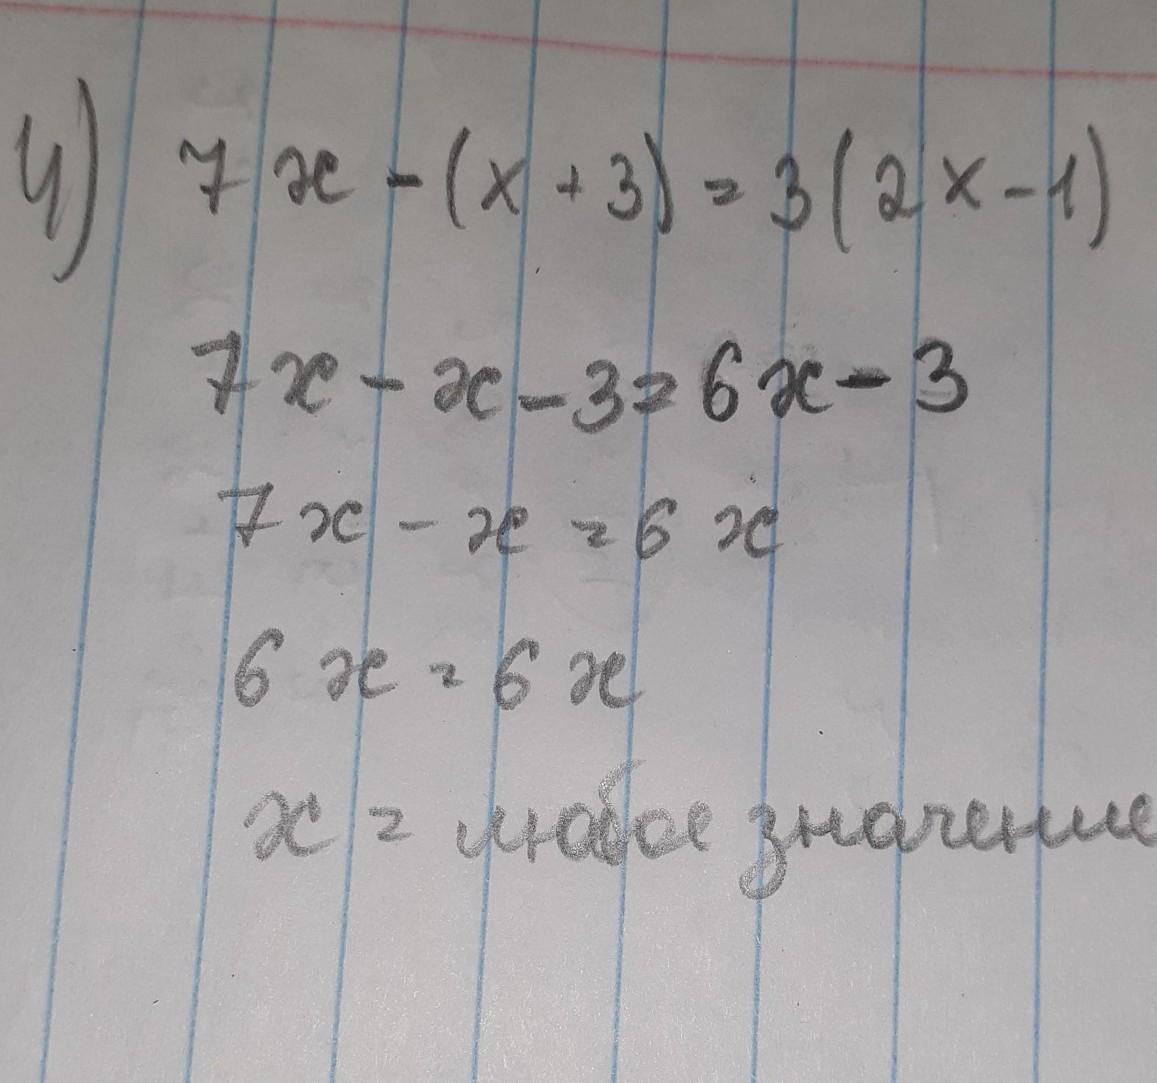 4) 7x - (x + 3) = 3(2x - 1)
7x - x - 3 = 6x - 3
7x - x = 6x
6x = 6x
x = любое значение